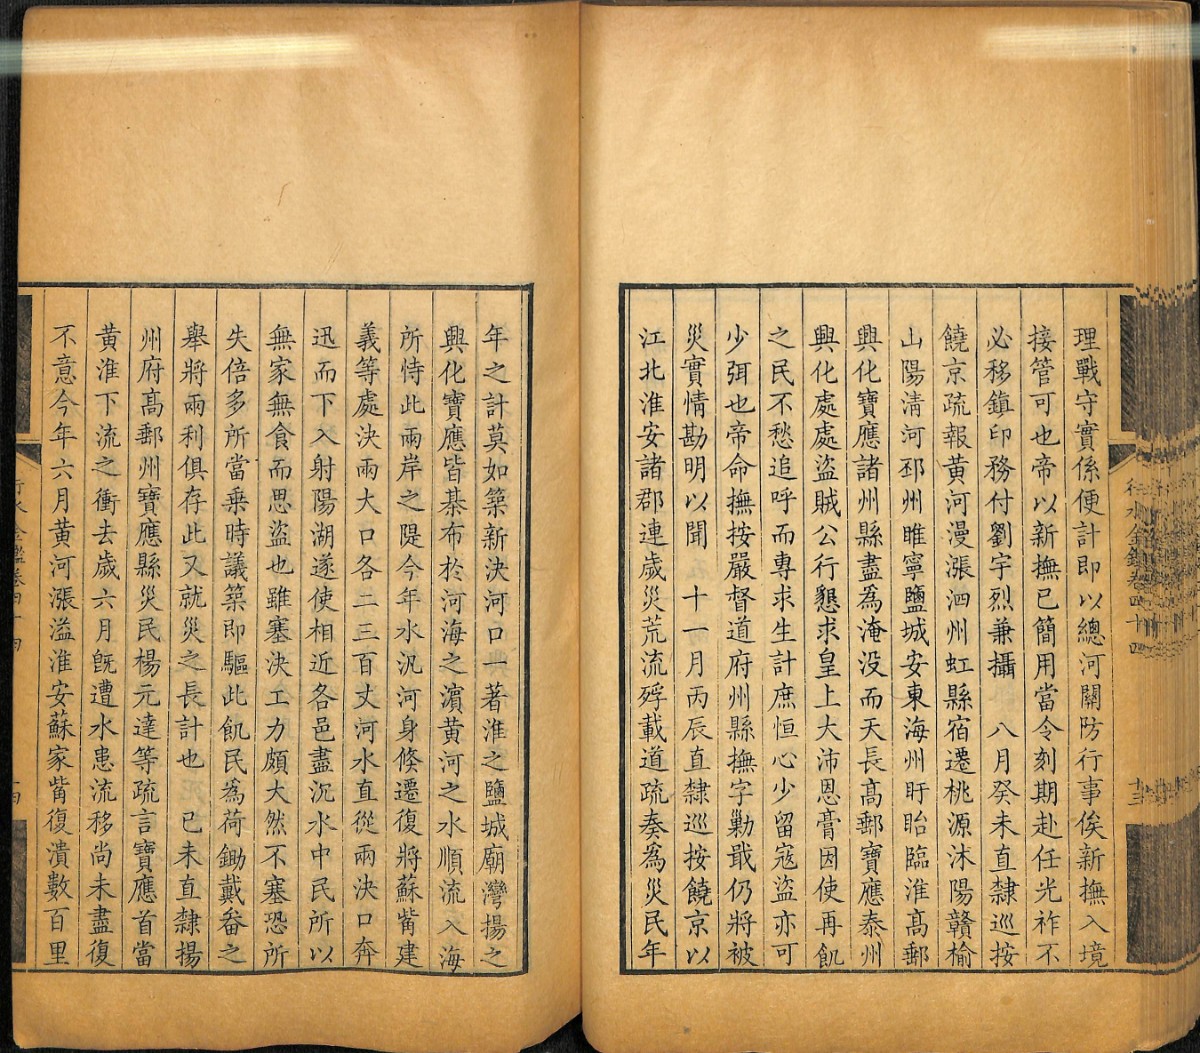 理戰守實係便計即以總河關防行事俟新撫入境
接管可也帝以新撫已簡用當令刻期赴任光祚不
必移鎮印務付劉宇烈兼攝　八月癸未直隸巡按
饒京疏報黃河漫漲泗州虹縣宿遷桃源沭陽贛榆
山陽清河邳州睢寧鹽城安東海州盱眙臨淮高郵
興化寶應諸州縣盡為淹没而天長高郵寶應泰州
興化處處盜賊公行懇求皇上大沛恩膏因使再飢
之民不愁追呼而專求生計庶恒心少留寇盜亦可
少弭也帝命撫按嚴督道府州縣撫字勦戢仍將被
災實情勘明以聞　十一月丙辰直隸巡按饒京以
江北淮安諸郡連歲災荒流殍載道疏奏為災民年
行水金鑑卷四十四
十三
年之計莫如築新決河口一著淮之鹽城廟灣揚之
興化寶應皆棊布於河海之濵黃河之水順流入海
所恃此兩岸之隄今年水汎河身倏遷復將蘇嘴建
義等處決兩大口各二三百丈河水直從兩決口奔
迅而下入射陽湖遂使相近各邑盡沉水中民所以
無家無食而思盜也雖塞決工力頗大然不塞恐所
失倍多所當乗時議築即驅此飢民為荷鋤戴畚之
舉將兩利俱存此又就災之長計也　己未直隸揚
州府高郵州寶應縣災民楊元達等疏言寶應首當
黃淮下流之衝去歲六月旣遭水患流移尚未盡復
不意今年六月黃河漲溢淮安蘇家嘴復潰數百里
行水金鑑卷四十四